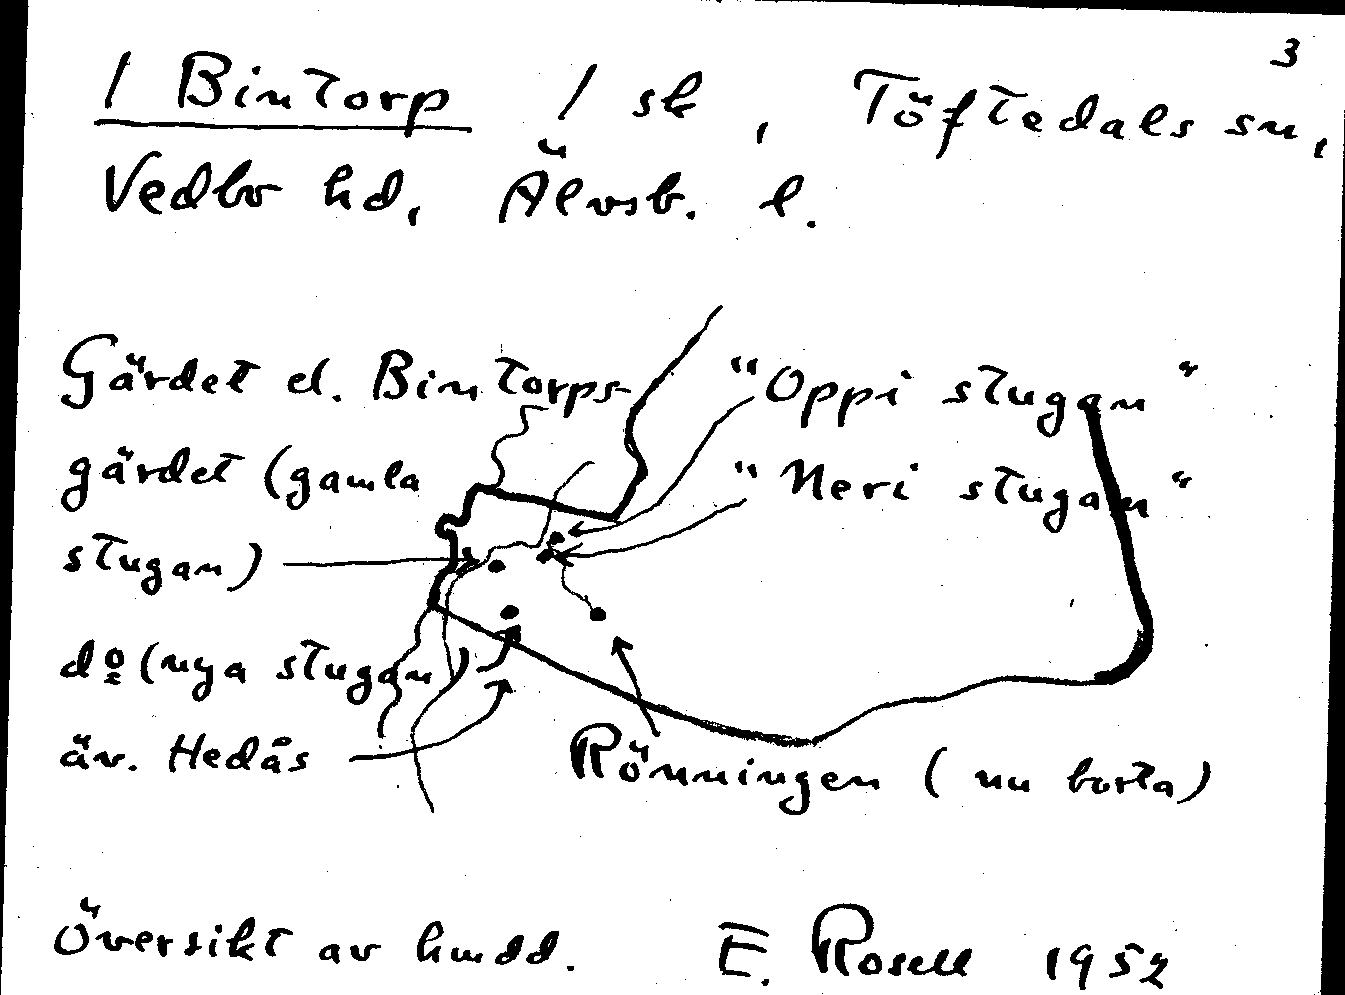 3
1 Bintorp 1 sk, Töftedals sn,
Vedbo hd, Älvsb. l.
Gärdet el. Bintorps-
gärdet (gamla
stugan)
"Oppi stugan"
"Neri stugan"
do (nya stugan)
äv. Hedås
Rönningen (nu borta)
Översikt av hmdd. E. Rosell 1952